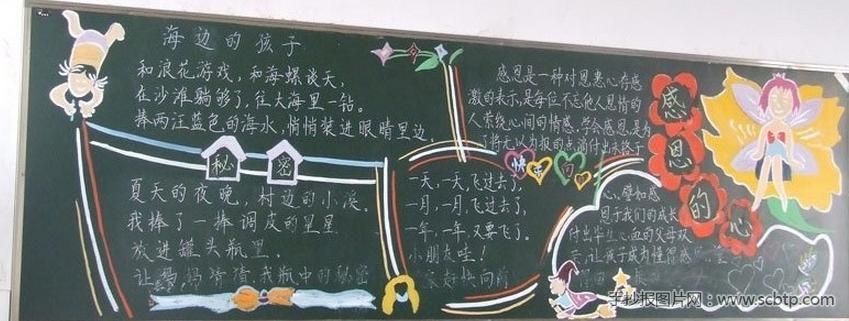 海边的孩子
和浪花游戏，和海螺谈天，
在沙滩躺够了，往大海里一钻。
捧两汪蓝色的海水，悄悄装进眼睛里边。
秘密
夏天的夜晚，村边的小溪。
我捧了一捧调皮的星星
放进罐头瓶里。
让妈妈猜猜，我瓶中的秘密
快乐
一天，一天，飞过去了，
一月，一月，飞过去了，
一年，一年又要飞了。
小朋友哇！
好快向前
感恩的心
感恩是一种对恩惠心存感
激的表示，是每位不忘他人恩情的
人萦绕心间的情感。学会感恩，是为
了将无以为报的点滴付出永铭于
心，譬如感
恩于我们的成长
付出毕生心血的父母双
亲，让孩子成为懂得感
手抄报图片网：www.scbtp.com